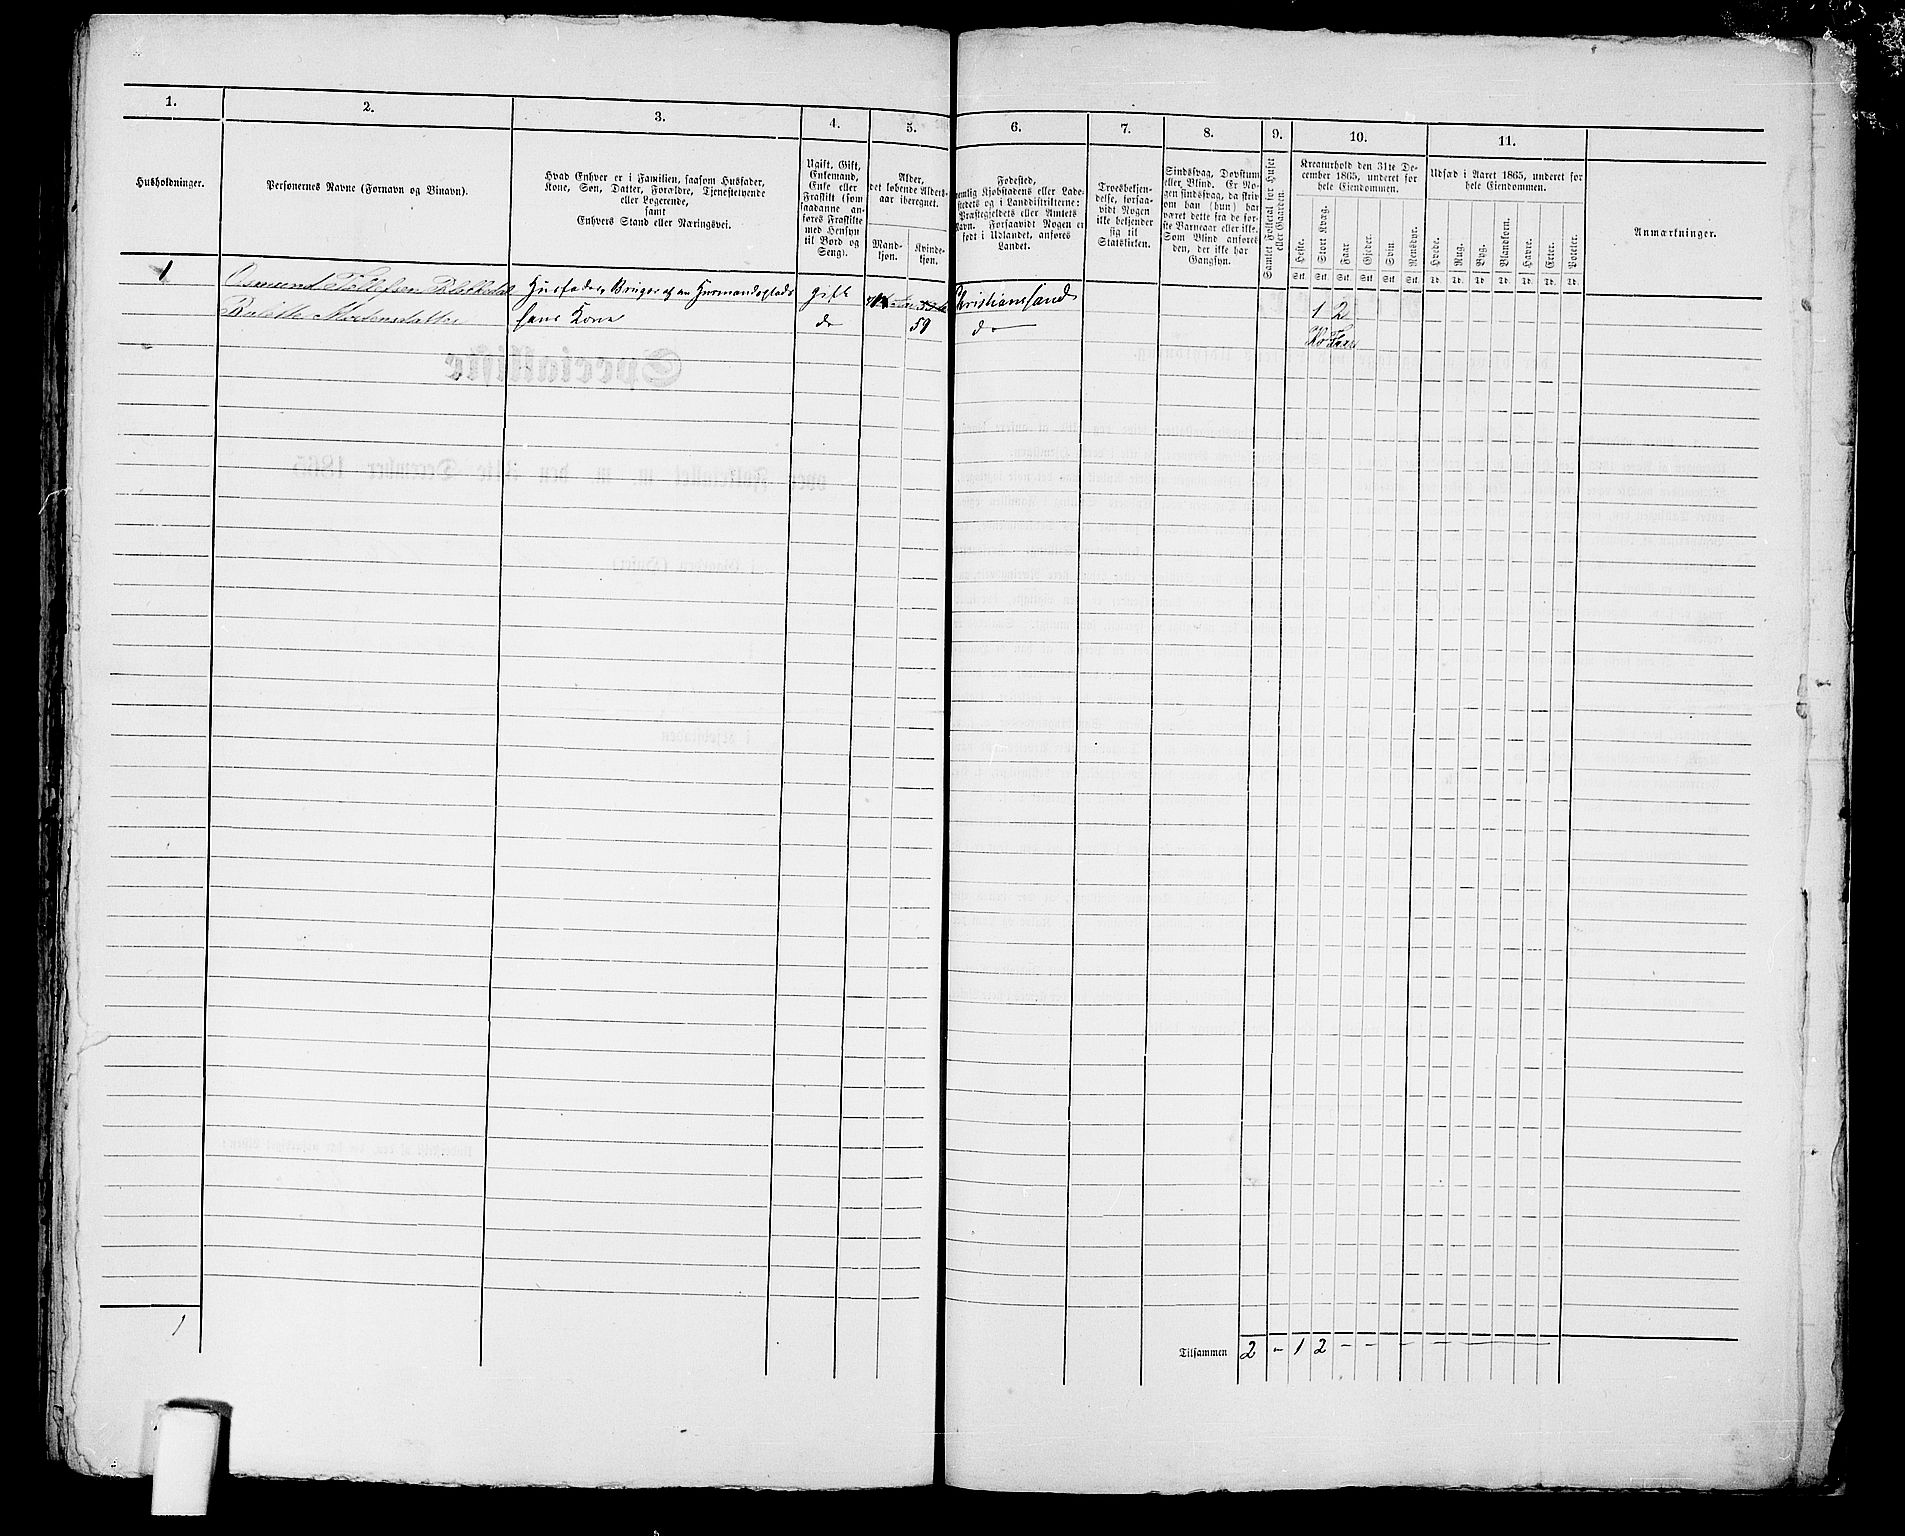 1. 2. 3. 4. 5. 6. 7. 8. 9. 10. 11.
Husholdninger.
Personernes Navne (Fornavn og Binavn).
Hvad Enhver er i Familien, saasom Husfader,
Kone, Søn, Datter, Forældre, Tjenestetyende
eller Logerende,
samt
Enhvers Stand eller Næringsvei.
Ugift, Gift,
Enkemand,
Enke eller
Fraskilt (som
saadanne an-
føres Fraskilte
med Hensyn
til Bord og
Seng).
Alder,
det løbende Alders-
aar iberegnet.
Mand-
kjøn.
Kvinde-
kjøn.
Fødested,
nemlig Kjøbstadens eller Lade-
stedets og i Landdistrikterne:
Præstegjeldets eller Amtets
Navn. Forsaavidt Nogen er
født i Udlandet, anføres
Landet.
Troesbekjen-
delse, forsaa-
vidt Nogen
ikke bekjender
sig til
Statskirken.
Sindssvag, Døvstum
eller Blind. Er No-
gen sindssvag, da skriv
om han (hun) har
været dette fra de før-
ste Barneaar eller ikke.
Som Blind anføres
den, der ikke har
Gangsyn.
Samlet Folketal for Huset
eller Gaarden.
Kreaturhold den 31te De-
cember 1865, underet for
hele Eiendommen.
Heste. Stort Kvæg. Faar Gjeder. Svin Rensdyr.
Stk. Stk. Stk. Stk. Stk. Stk.
Udsæd i Aaret 1865, underet for
hele Eiendommen.
Hvede. Rug. Byg. Blandkorn. Havre. Erter. Poteter.
Td. Td. Td. Td. Td. Td. Td.
Anmærkninger.
1 Husfader, gift Kristiansand 1 2
hans Kone do 59 do
1
Tilsammen 2 - 1 2 - - - -